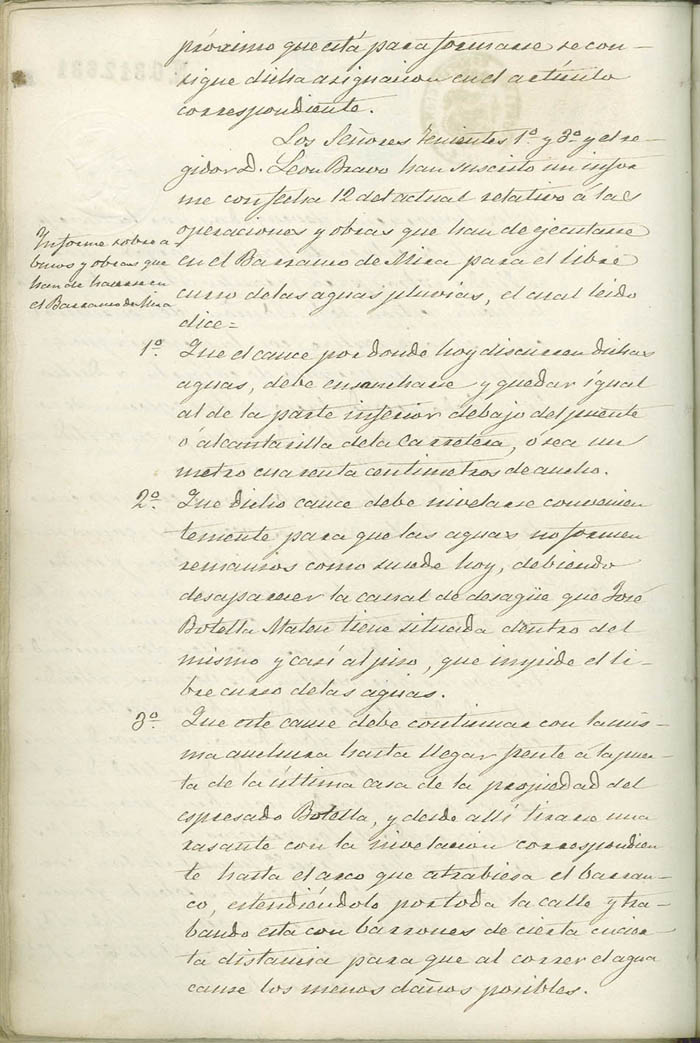 próximo que está para formarse se con-
signe dicha asignacion en el artículo
correspondiente.
Los Señores Tenientes 1º. y 3º. y el re-
gidor D. Leon Bravo han suscrito un infor
me con fecha 12 del actual relativo á las
operaciones y obras que han de ejecutarse
en el Barranco de Mira para el libre
curso de las aguas pluvias, el cual leido
dice=
Informe sobre a-
y obras que
han de hacerse en
el Barranco de Mira
1º. Que el cauce por donde hoy discurren dichas
aguas, debe ensancharse y quedar igual
al de la parte inferior debajo del puente
ó alcantarilla de la Carretera, ó sea un
metro cuarenta centímetros de ancho.
2º. Que dicho cauce debe nivelarse convenien
temente para que las aguas no formen
remansos como sucede hoy, debiendo
desaparecer la canal de desagüe que José
Botella Mateu tiene situada dentro del
mismo y casi al piso, que impide el li-
bre curso de las aguas.
3º. Que este cause debe continuar con la mis-
ma anchura hasta llegar frente á la puer-
ta de la última casa de la propiedad del
espresado Botella, y desde allí tirarse una
rasante con la nivelacion correspondien
te hasta el arco que atrabiesa el barran-
co, estendiéndolo por toda la calle y tra-
bando esta con barrones de cierta en cier-
ta distancia para que al correr el agua
cause los menos daños posibles.